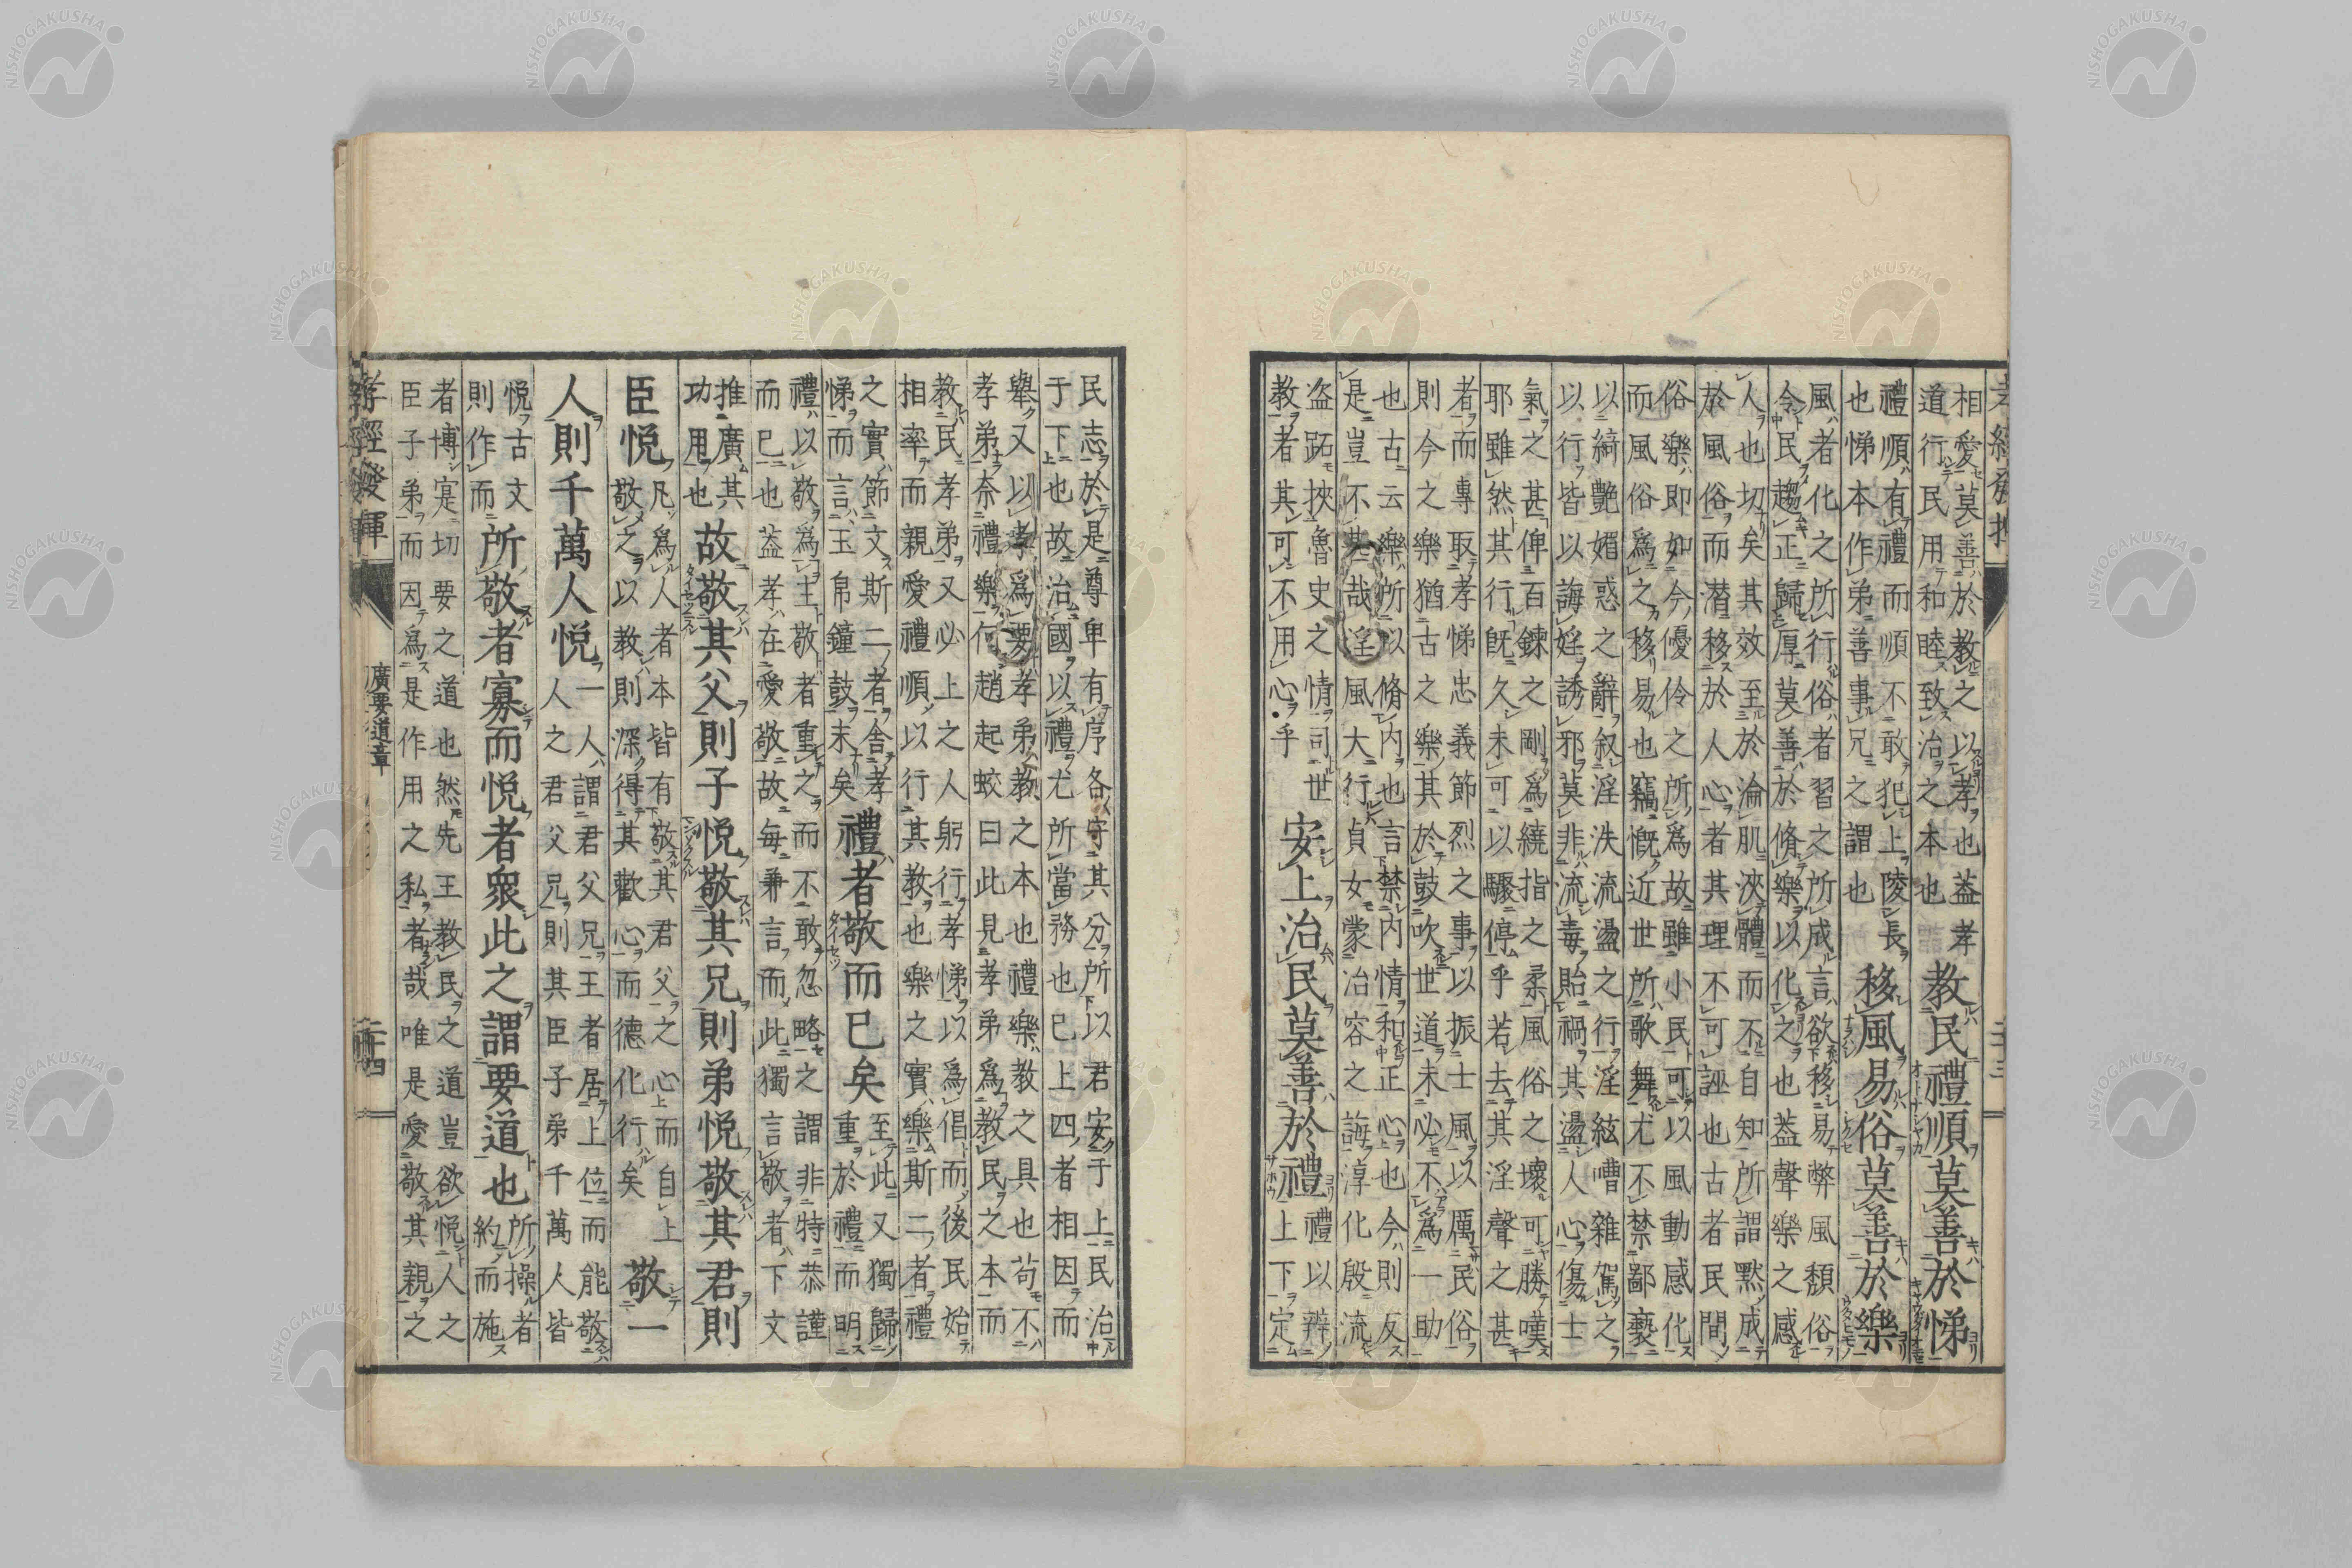 相愛莫善於教之以孝也蓋孝
道行民用和睦致治之本也
教民禮順莫善於悌
禮順有禮而順不敢犯上陵長
也悌本作弟善事兄之謂也
移風易俗莫善於樂
風者化之所行俗者習之所成言欲移易弊風頽俗
令民趨正歸厚莫善於脩樂以化之也蓋聲樂之感
人也切矣其效至於淪肌浹體而不自知所謂黙成
於風俗而潜移於人心者其理不可誣也古者民間
俗樂即如今優伶之所爲故雖小民可以風動感化
而風俗爲之移易也竊慨近世所歌舞尤不禁鄙褻
以綺艶媚惑之辭叙淫泆流盪之行淫絃嘈雜駕之
以行皆以誨婬誘邪莫非流毒貽禍其盪人心傷士
氣之甚俾百鍊之剛爲繞指之柔風俗之壞可勝嘆
耶雖然其行既久未可以驟停乎若去其淫聲之甚
者而專取孝悌忠義節烈之事以振士風以厲民俗
則今之樂猶古之樂其於鼓吹世道未必不為一助
也古云樂所以脩内也言禁内情和正心也今則反
是豈不悲哉淫風大行貞女蒙冶容之誨淳化殷流
盗跖挾魯史之情司世
教者其可不用心乎
安上治民莫善於禮
禮以辨
上下定
民志於是尊卑有序各守其分所以君安于上民治
于下也故治國以禮尤所當務也已上四者相因而
舉又以孝爲要孝弟教之本也禮樂教之具也苟不
孝弟奈禮樂何趙起蛟曰此見孝弟爲教民之本而
教民孝弟又必上之人躬行孝悌以爲倡而後民始
相率而親愛禮順以行其教也樂之實樂斯二者禮
之實節文斯二者舍孝
悌而言玉帛鐘鼓末矣
禮者敬而已矣
至此又獨歸
重於禮而明
禮以敬爲主敬者重之而不敢忽略之謂非特恭謹
而已也蓋孝在愛敬故毎兼言而此獨言敬者下文
推廣其
功用也
故敬其父則子悦敬其兄則弟悦敬其君則
臣悦
凡爲人者本皆有敬其君父之心而自上
敬之以教則深得其歡心而德化行矣
敬一
人則千萬人悦
一人謂君父兄王者居上位而能敬
人之君父兄則其臣子弟千萬人皆
悦古文
則作而
所敬者寡而悦者衆此之謂要道也
所操者
約而施
者博寔切要之道也然先王教民之道豈欲悦人之
臣子弟而因爲是作用之私者哉唯是愛敬其親之
孝經發揮
廣要道章
二十四